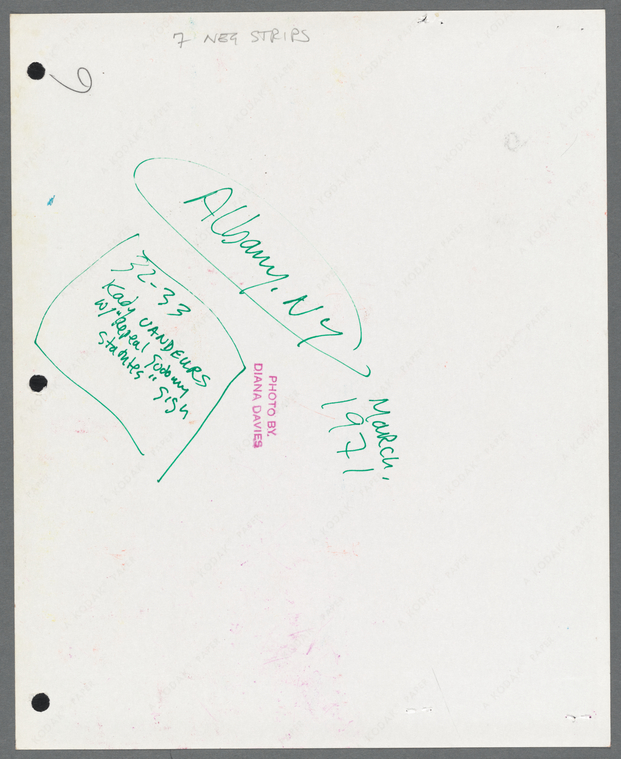 7 NEG STRIPS
9
Albany, NY
32-33
Kady VANDEURS
w/ "Repeal Sodomy
Statutes" sign
PHOTO BY.
DIANA DAVIES
MARCH,
1971